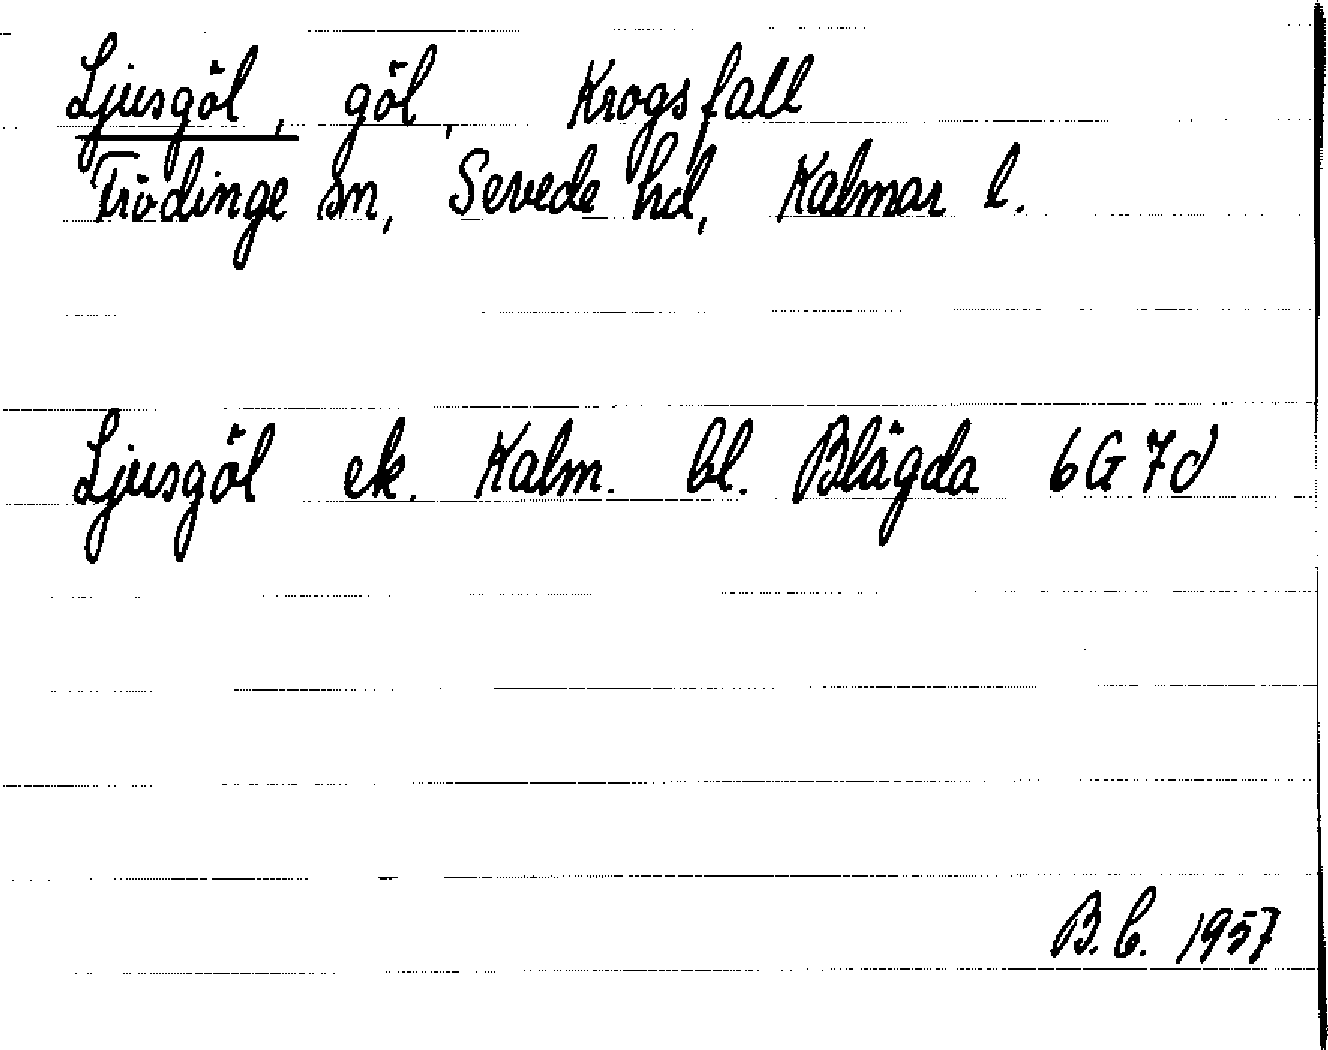 Ljusgöl, göl, Krogsfall
Frödinge sn, Sevede hd, Kalmar l.
Ljusgöl ek. Kalm. bl. Blägda 6G 7d
B.C. 1957